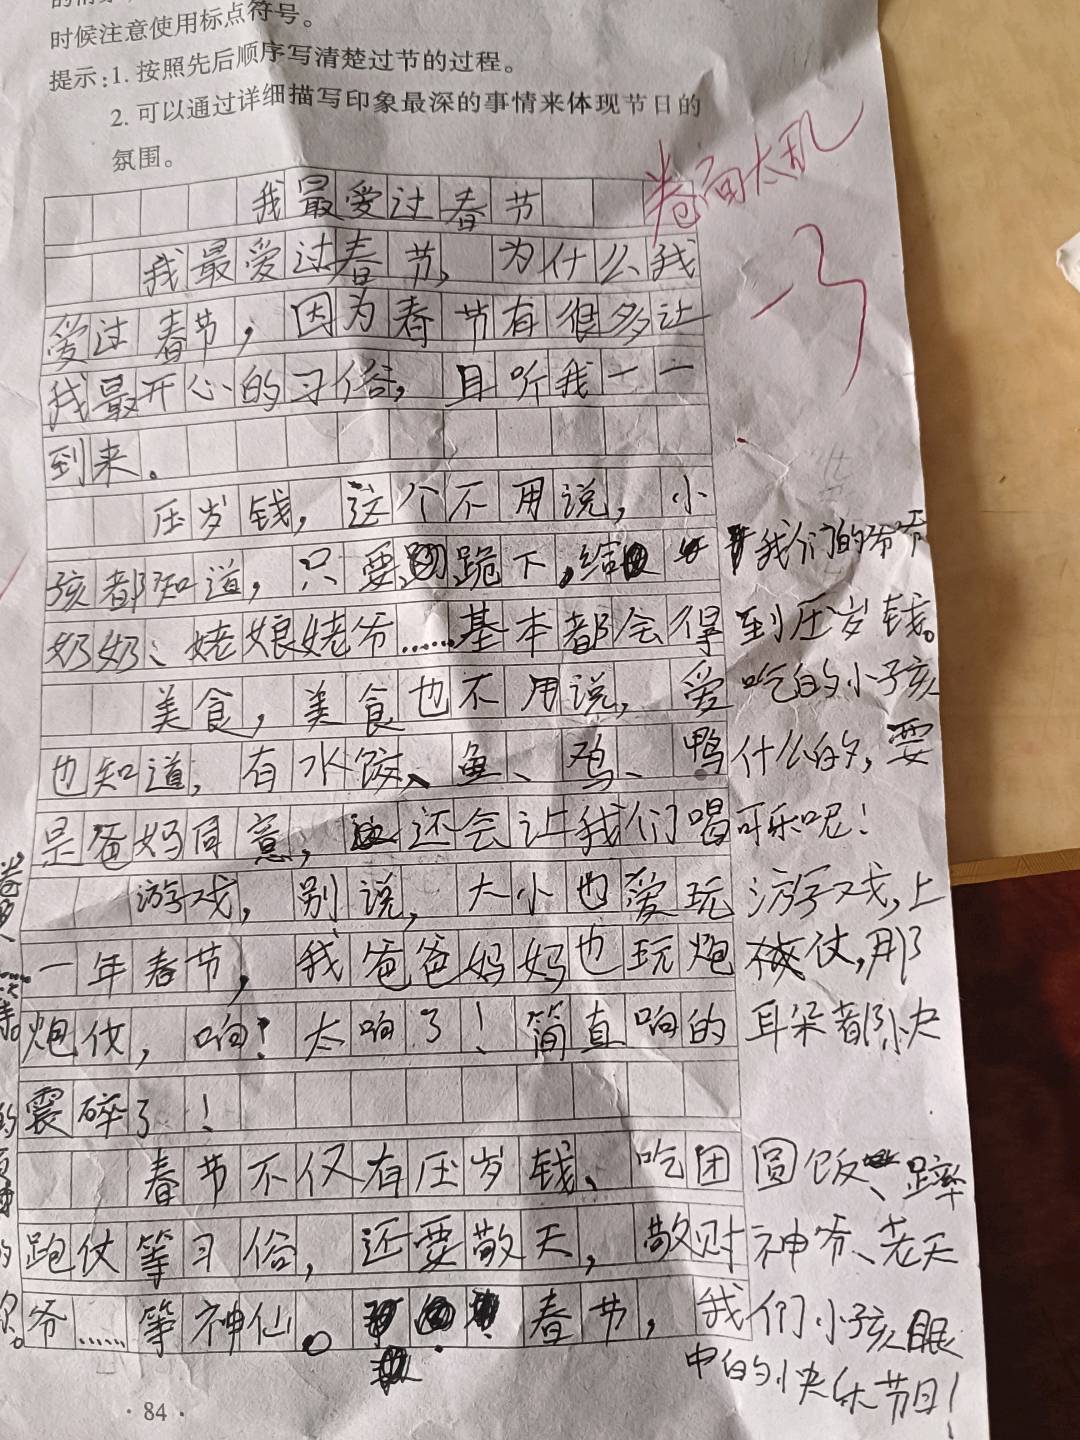 时候注意使用标点符号。
提示:1. 按照先后顺序写清楚过节的过程。
2. 可以通过详细描写印象最深的事情来体现节日的
氛围。
卷面太乱
-3
我最爱过春节
我最爱过春节，为什么我
爱过春节，因为春节有很多让
我最开心的习俗，且听我一一
到来。
压岁钱，这个不用说，小
孩都知道，只要跪下，给我们的爷爷
奶奶、姥娘姥爷……基本都会得到压岁钱。
美食，美食也不用说，爱吃的小孩
也知道，有水饺、鱼、鸡、鸭什么的，要
是爸妈同意，还会让我们喝可乐呢！
游戏，别说，大小也爱玩游戏，上
一年春节，我爸爸妈妈也玩炮仗，那
炮仗，响！太响了！简直响的耳朵都快
震碎了！
春节不仅有压岁钱、吃团圆饭、
跑仗等习俗，还要敬天，敬财神爷、老天
爷……等神仙。春节，我们小孩眼
中的快乐节日！
· 84 ·